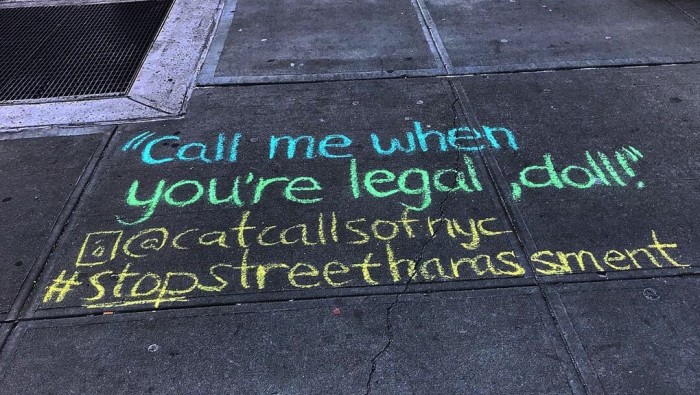 "Call me when
you're legal, doll!"
@catcallsofnyc
#stopstreetharassment